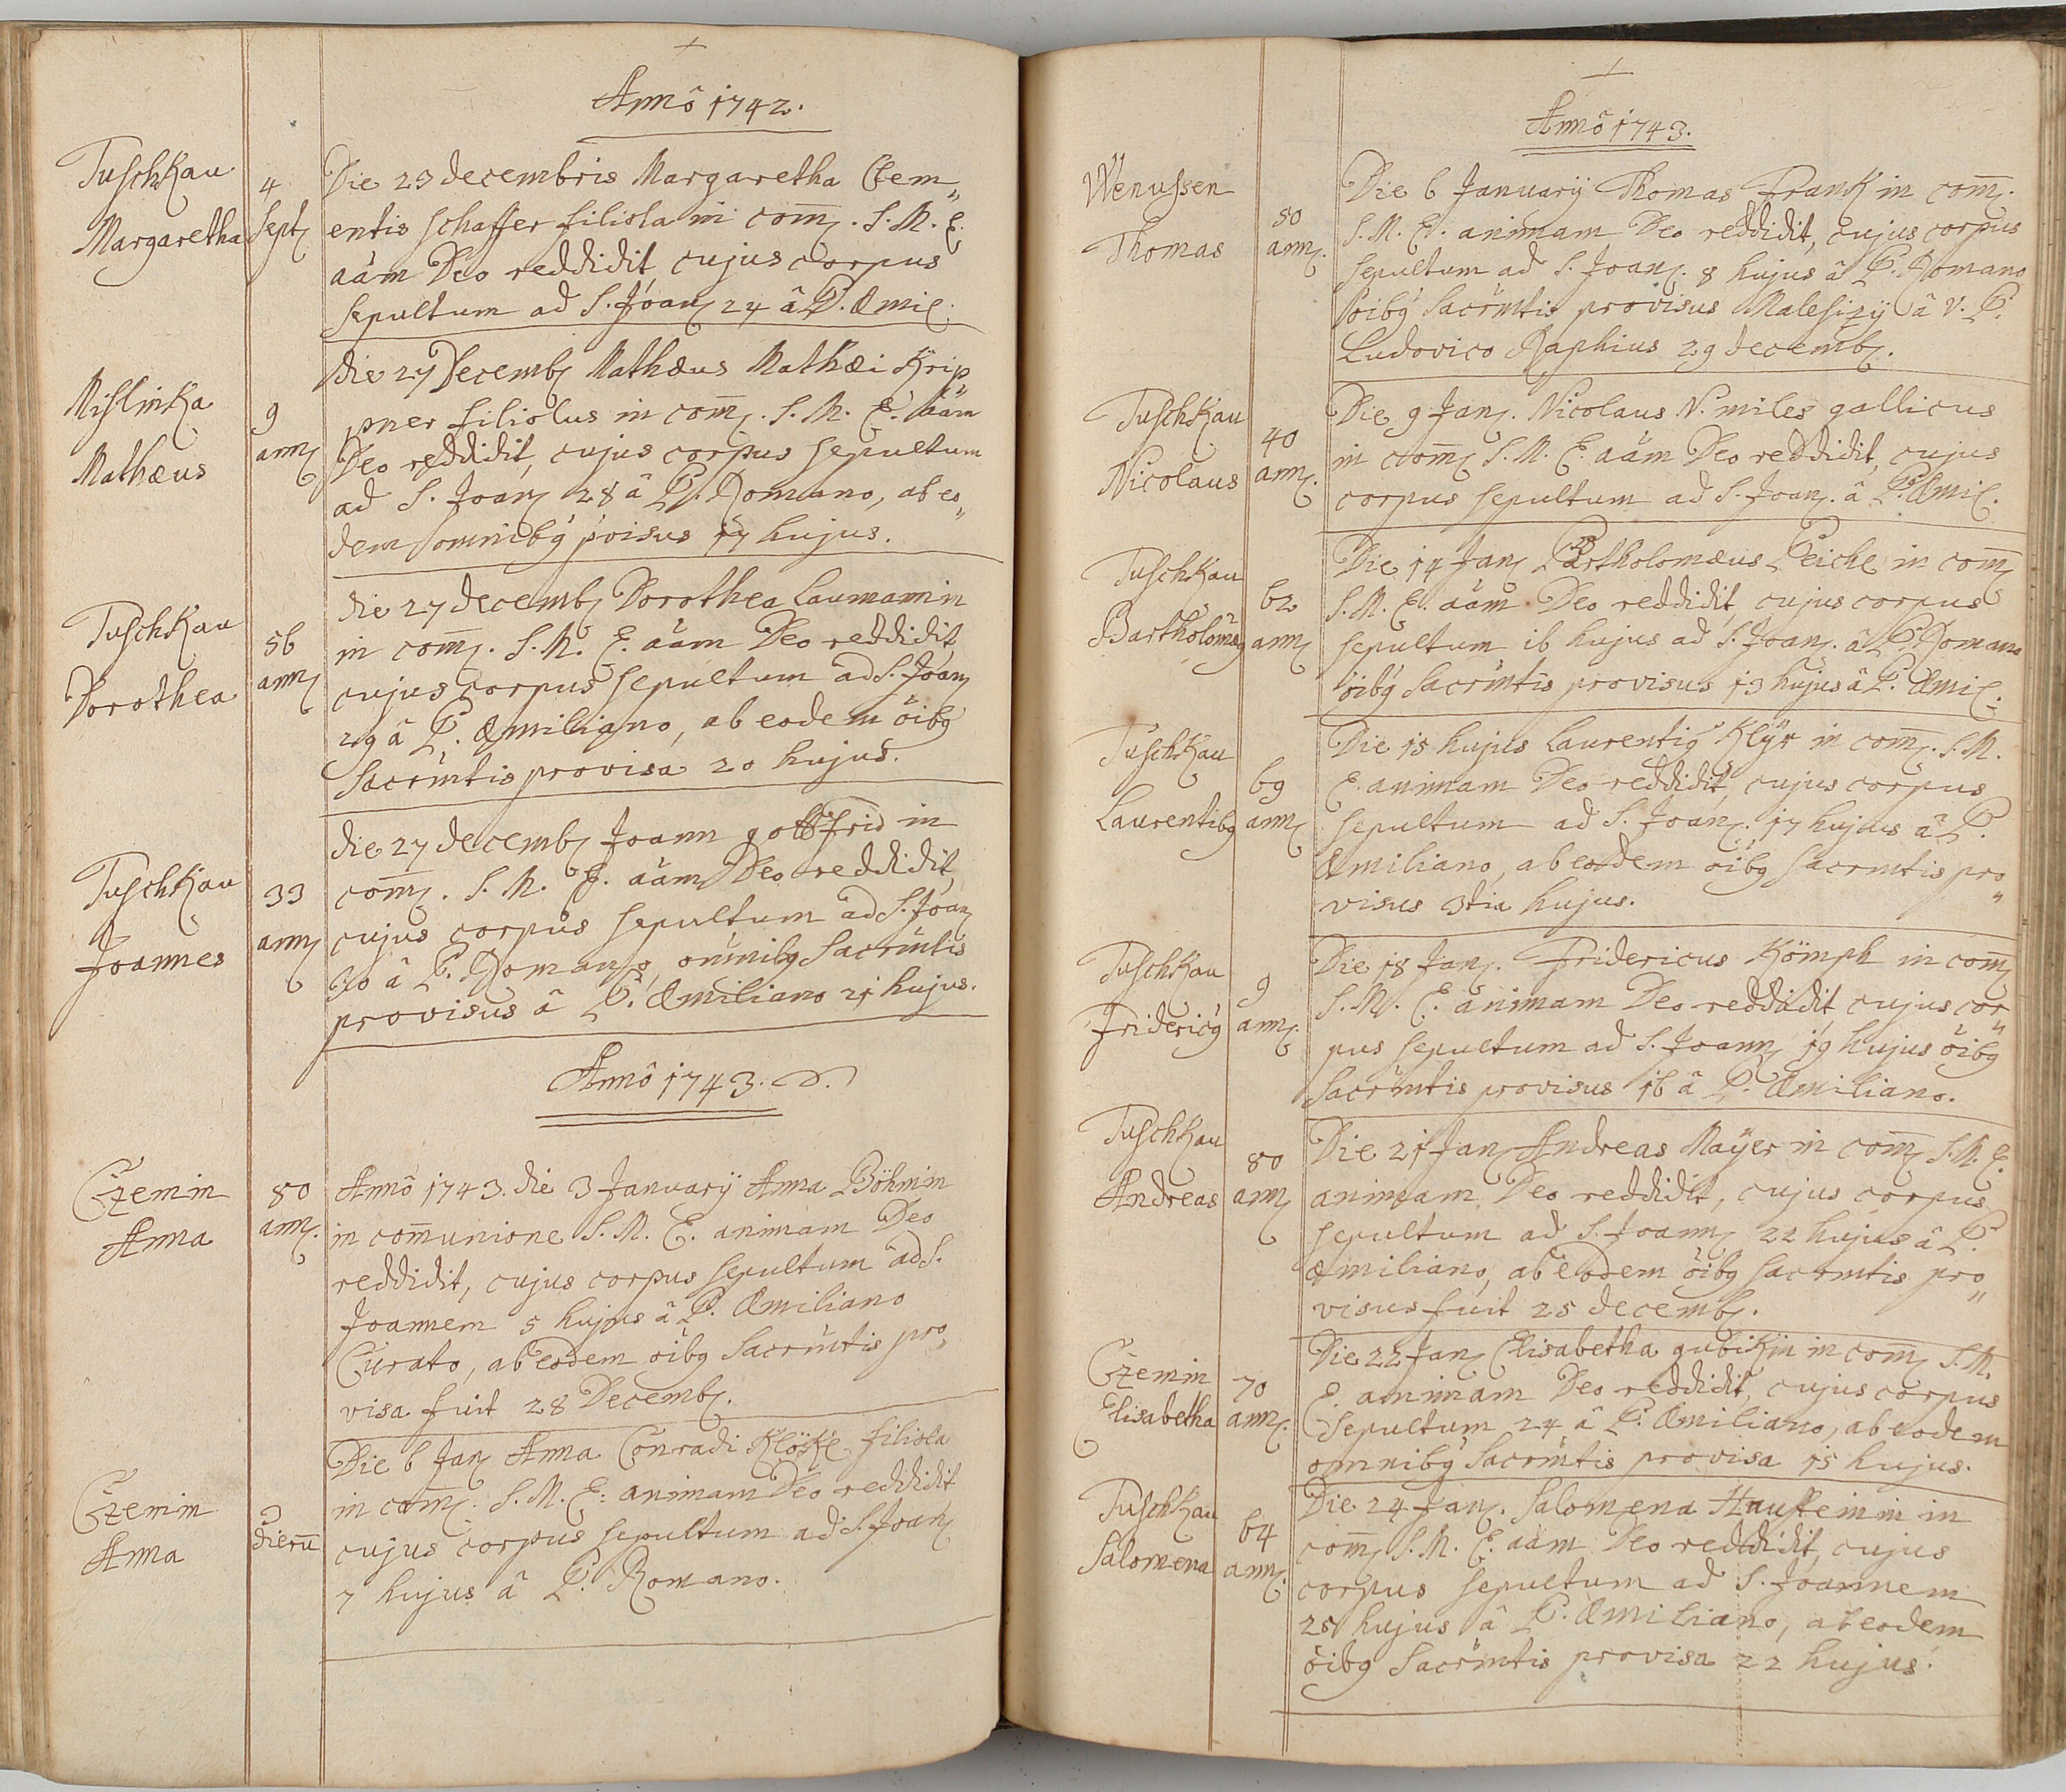 Annô 1742.
Tuschkau
Margaretha
4
Sept
Die 23 decembris Margaretha Clem„
entis schaffer filiola in com̄. S. M. E.
aäm Deo reddidit cujus corpus
sepultum ad S. Joan 24 â P. Æmil.
Mislinka
Mathæus
9
ann
die 27 Decemb Mathæus Mathæi Krip„
pner filiolus in com̄. S. M. E. aäm
Deo reddidit, cujus corpus sepultum
ad S. Joan 28 â P. Romano, ab eo„
dem omnibg poisus 17 hujus.
Tuschkau
Dorothea
56
ann
die 27 decemb Dorothea Laumanin
in com̄. S. M. E. aäm Deo reddidit,
cujus corpus sepultum ad S. Joan
29 â P. Æmiliano, ab eodem öibg
Sacrm̃tis provisa 20 hujus.
Tuschkau
Joannes
33
ann
die 27 decemb Joann gottfrid in
com̄. S. M. E. aäm Deo reddidit,
cujus corpus sepultum ad S. Joan
30 â P. Romano, omnibg Sacrm̃tis
provisus â P. Æmiliano 21 hujus.
Annô 1743.
Czemin
Anna
80
ann.
Annô 1743. die 3 Januarÿ Anna Böhmin
in com̄unione S. M. E. animam Deo
reddidit, cujus corpus sepultum ad S.
Joannem 5 hujus â P. Æmiliano
Curato, ab eodem öibg Sacrm̃tis pro„
visa fuit 28 Decemb.
Czemin
Anna
3
dierū
Die 6 Jan Anna Conradi Klöskl filiola
in com̄. S. M. E. animam Deo reddidit
cujus corpus sepultum ad S. Joan
7 hujus â P. Romano.
Annô 1743.
Wenussen
Thomas
50
ann.
Die 6 Januarÿ Thomas Frank in com̄.
S. M. E. animam Deo reddidit, cujus corpus
sepultum ad S. Joan. 8 hujus â P. Romano
öibg Sacrm̃tis provisus Malesizÿ â V. P.
Ludovico Raphius 29 decemb.
Tuschkau
Nicolaus
40
ann.
Die 9 Jan. Nicolaus N. miles gallicus
in com̄ S. M. E. aäm Deo reddidit, cujus
corpus sepultum ad S. Joan. â P. Æmil.
Tuschkau
Bartholomæg
62
ann
Die 14 Jan Bartholomæus Peickl in com̄
S. M. E. aäm Deo reddidit, cujus corpus
sepultum 16 hujus ad S. Joan. â P. Romano
öibg Sacrm̃tis provisus 13 hujus â P. Æmil.
Tuschkau
Laurentibg
69
ann
Die 15 hujus Laurentig Klÿr in com̄. S. M.
E. animam Deo reddidit, cujus corpus
sepultum ad S. Joan. 17 hujus â P.
Æmiliano, ab eodem öibg sacrm̃tis pro„
visus 3tia hujus.
Tuschkau
Fridericg
9
ann.
Die 18 Jan. Fridericus Kömph in com̄
S. M. E. animam Deo reddidit cujus cor„
pus sepultum ad S. Joann 19 hujus öibg
Sacrm̃tis provisus 16 â P. Æmiliano.
Tuschkau
Andreas
80
ann
Die 21 Jan Andreas Maÿer in com̄ S. M. E.
animam Deo reddidit, cujus corpus
sepultum ad S. Joann 22 hujus â P.
Æmiliano, ab eodem öibg sacrm̃tis pro„
visus fuit 25 decemb.
Czemin
Elisabetha
70
ann.
Die 22 Jan Elisabetha gubikin in com̄ S. M.
E. animam Deo reddidit, cujus corpus
sepultum 24 â P. Æmiliano, ab eodem
omnibg Sacrm̃tis provisa 15 hujus.
Tuschkau
Salomena
64
ann.
Die 24 Jan. Salomena Haussteinin in
com̄ S. M. E. aäm Deo reddidit, cujus
corpus sepultum ad S. Joannem
25 hujus â P. Æmiliano, ab eodem
öibg Sacrm̃tis provisa 22 hujus.